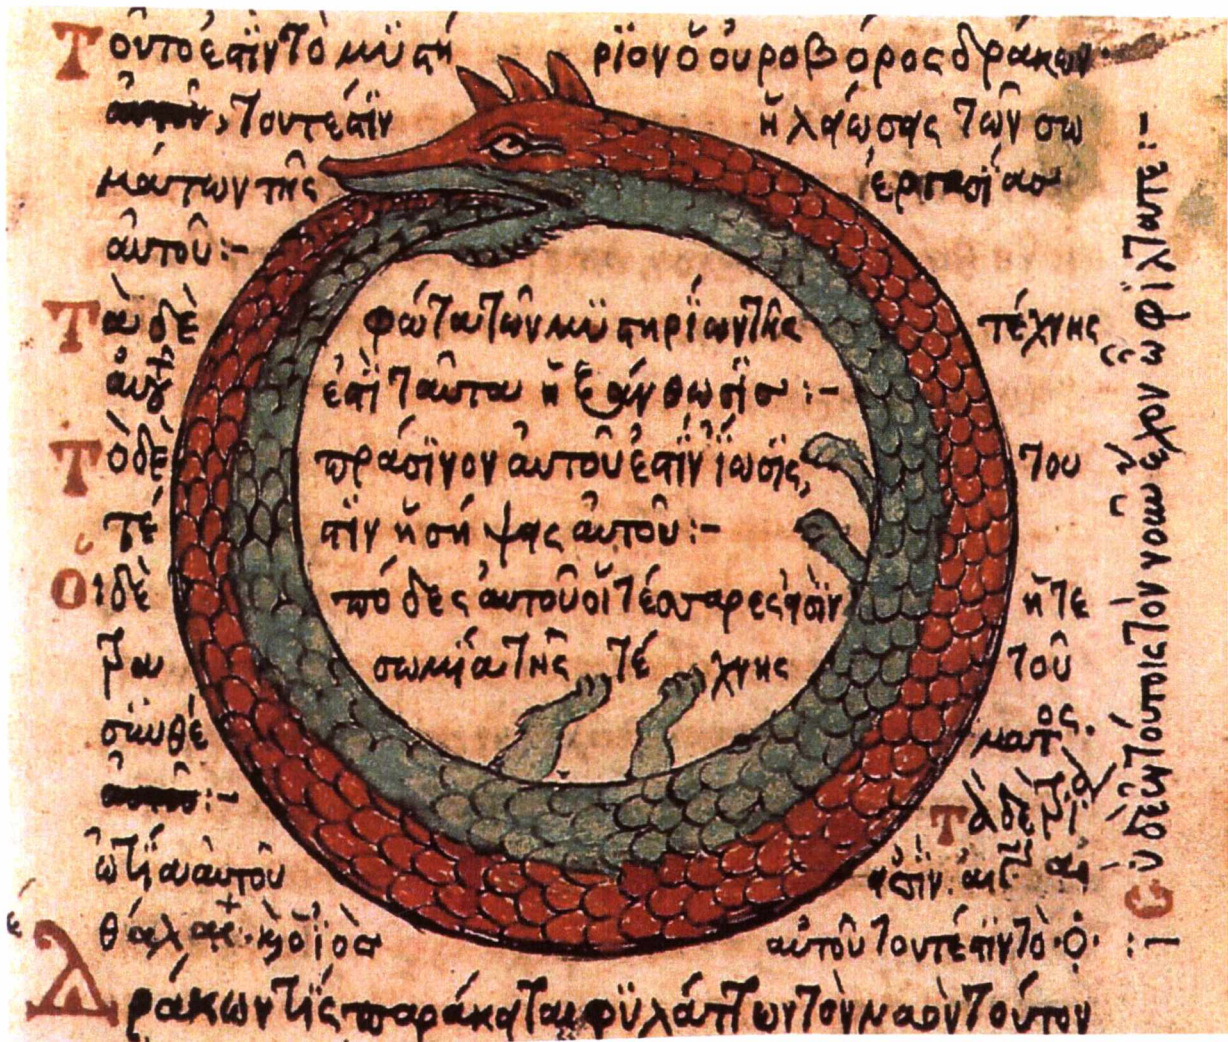 Τοῦτό ἐστϊν τὸ μϋστήριον ὁ οὐροβόρος δράκων·
τουτέστϊν ἡ λάωσης τῶν σω
μάτων τῆς ἐργασίας
αὐτοῦ:-
Τὰ δὲ φῶτα τῶν μϋστηρίων τῆς τέχνης
ἐστὶ ταῦτα ἡ ξάνθωσϊς:-
Τὸ δὲ πράσϊνον αὐτοῦ ἐστϊν ἴωσϊς, του
τέστϊν ἡ σήψης αὐτοῦ:-
Οἱ δὲ πόδες αὐτοῦ οἱ τέσσαρες εἰσϊν ἡ τε
τρασωμία τῆς τέχνης τοῦ
συνθέματος·
Τὰ δὲ τρί
ὠτία αὐτοῦ εἰσϊν
αὐτοῦ τουτέστϊν τὸ
Δράκων τὶς παράκειται φϋλάττων τὸν ναὸν τοῦτον
Σὺ δὲ ἐν τούτοις τὸν νοῦν ἔχον ὦ φίλτατε:-